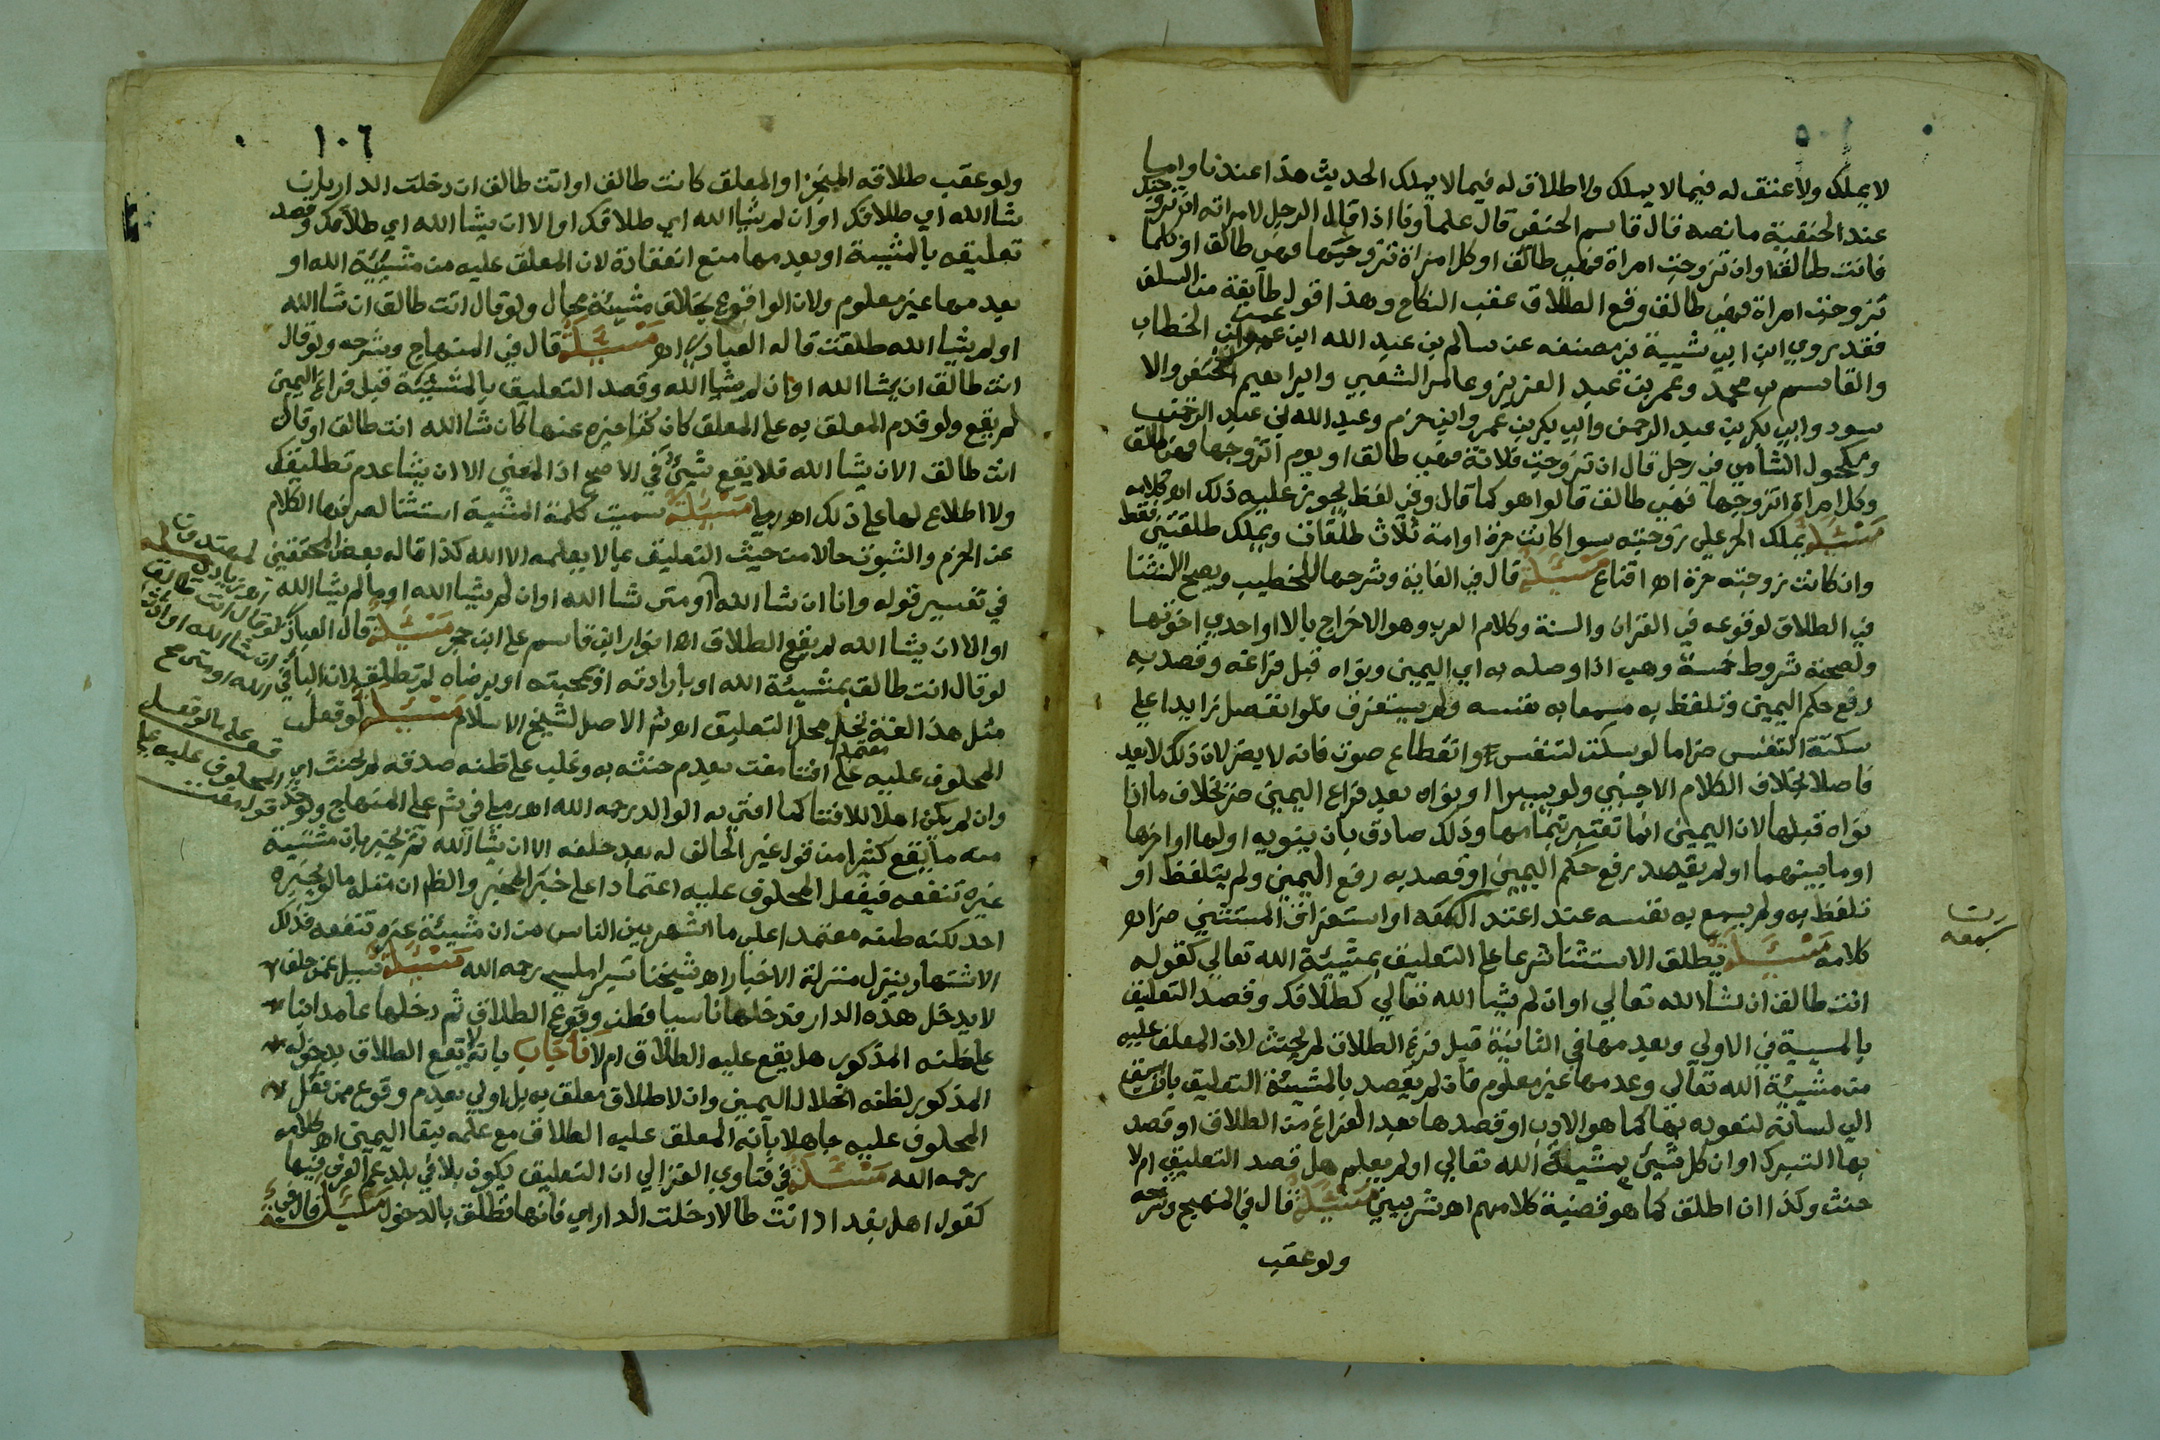 لا يملك ولا عتق له فيما لا يملك ولا طلاق له فيما لا يملك الحديث هذا عندنا واما
عند الحنفية ما نصه قال قاسم الحنفي قال علماونا اذا قال الرجل لامراته ان تزوجتك
فانت طالق وان تزوجت امراة فهي طالق او كل امراة تزوجتها فهي طالق او كلما
تزوجت امراة فهي طالق وقع الطلاق عقب النكاح وهذا قول طايفة من السلف
فقد روي ابن ابي شيبة في مصنفه عن سالم بن عبد الله ابن عمر ابن الخطاب
والقاسم بن محمد وعمر بن عبد العزيز وعامر الشعبي وابراهيم النخعي والا
سود وابي بكر بن عبد الرحمن وابي بكر بن عمرو ابن حزم وعبد الله بن عبد الرحمن
ومكحول الشامي في رجل قال ان تزوجت فلانة فهي طالق او يوم اتزوجها فهي طالق
وكل امراة اتزوجها فهي طالق قالوا هو كما قال وفي لفظ يجوز عليه ذلك اه كلامه
مسئلة يملك الحر علي زوجته سوا كانت حرة او امة ثلاث طلقات ويملك طلقتين فقط
وان كانت زوجته حرة اه اقناع مسئلة قال في الغاية وشرحها للخطيب ويصح الاستثنا
في الطلاق لوقوعه في القران والسنة وكلام العرب وهو الاخراج بالا او احدي اخوتها
ولصحته شروط خمسة وهي اذا وصله به اي اليمين ونواه قبل فراغه وقصد به
رفع حكم اليمين وتلفظ به مسمعا به نفسه ولم يستغرق فلو انفصل زايدا علي
سكتة التنفس ضر اما لو سكت لتنفس او انقطاع صوت فانه لا يضر لان ذلك لا يعد
فاصلا بخلاف الكلام الاجنبي ولو يسيرا او نواه بعد فراغ اليمين ضر بخلاف ما اذا
نواه قبلها لان اليمين انما تعتبر بتمامها وذلك صادق بان ينويه اولها او اخرها
او ما بينهما او لم يقصد رفع حكم اليمين او قصد به رفع اليمين ولم يتلفظ او
تلفظ به ولم يسمع به نفسه عند اعتدال سمعه او استغراق المستثني ضر اه
كلامه مسئلة يطلق الاستثنا شرعا علي التعليق بمشيئة الله تعالي كقوله
انت طالق ان شا الله تعالي او ان لم يشا الله تعالي كطلاقك وقصد التعليق
بالمشيئة في الاولي وبعدمها في الثانية قبل فراغ الطلاق لم يحنث لان المعلق عليه
من مشيئة الله تعالي وعدمها غير معلوم فان لم يقصد بالمشيئة التعليق بان سبق
الي لسانه لتعوده بها كما هو الادب او قصدها بعد الفراغ من الطلاق او قصد
بها التبرك او ان كل شيئ بمشيئة الله تعالي او لم يعلم هل قصد التعليق ام لا
حنث وكذا ان اطلق كما هو قضية كلامهم اه شربيني مسئلة قال في المنهج وشرحه
ولو عقب
سمعه
١٠٦
ولو عقب طلاقه المنجز او المعلق كانت طالق او انت طالق ان دخلت الدار بان
شا الله اي طلاقك او ان لم يشا الله اي طلاقك او الا ان يشا الله اي طلاقك وقصد
تعليقه بالمشيئة او بعدمها منع انعقاده لان المعلق عليه من مشيئة الله او
بعدمها غير معلوم ولان الوقوع بخلاف مشيئة محال ولو قال انت طالق ان شا الله
او لم يشا الله طلقت قاله العبادي اه مسئلة قال في المنهاج وشرحه ولو قال
انت طالق ان يشا الله او ان لم يشا الله وقصد التعليق بالمشيئة قبل فراغ اليمين
لم يقع ولو قدم المعلق به علي المعلق كان كتاخيره عنها كان شا الله انت طالق او قال
انت طالق الا ان يشا الله فلا يقع شيئ في الاصح اذ المعني الا ان يشا عدم تطليقك
ولا اطلاع لها علي ذلك اه رملي مسئلة سميت كلمة المشيئة استثنا لصرفها الكلام
عن الجزم والثبوت حالا من حيث التعليق بما لا يعلمه الا الله كذا قاله بعض المحققين
في تفسير قوله وانا ان شا الله او متي شا الله او ان لم يشا الله او ما لم يشا الله
او الا ان يشا الله لم يقع الطلاق اه ابن قاسم علي ابن حجر مسئلة قال العبادي
لو قال انت طالق بمشيئة الله او بارادته او بمحبته او برضاه لم تطلق لان البا في
مثل هذا الغة تحل محل التعليق اه شر الاصل لشيخ الاسلام مسئلة لو فعل
المحلوف عليه معتمدا علي افتا مفت بعدم حنثه به وغلب علي ظنه صدقه لم يحنث اي
وان لم يكن اهلا للافتا كما افتي به الوالد رحمه الله اه رملي في شر علي المنهاج ويوخذ
منه ما يقع كثيرا من قول غير الحالف له بعد حلفه الا ان شا الله ثم يخبر بان مشيئة
غيره تنفعه فيفعل المحلوف عليه اعتمادا علي خبر المخبر والظ ان مثله ما لو لم يخبره
احد لكنه ظنه معتمدا علي ما اشتهر بين الناس من ان مشيئة غيره تنفعه فذلك
الاشتهار ينزل منزلة الاخبار اه شيخنا شبراملسي رحمه الله مسئلة سيل عمن حلف
لا يدخل هذه الدار فدخلها ناسيا فظن وقوع الطلاق ثم دخلها عامدا بنا
علي ظنه المذكور هل يقع عليه الطلاق ام لا فاجاب بانه لا يقع الطلاق بدخوله
المذكور لظنه انحلال اليمين وان لا طلاق معلق به بل اولي بعدم وقوع ممن فعل
المحلوف عليه جاهلا بانه المعلق عليه الطلاق مع علمه ببقا اليمين اه كلامه
رحمه الله مسئلة في فتاوي الغزالي ان التعليق يكون بلا في بلد عم العرف فيها
كقول اهل بغداد انت طالا دخلت الدار اي فانها تطلق بالدخول مسئلة قال في
لو قال انت طالق
ان شا الله او ان
الله او متي صح